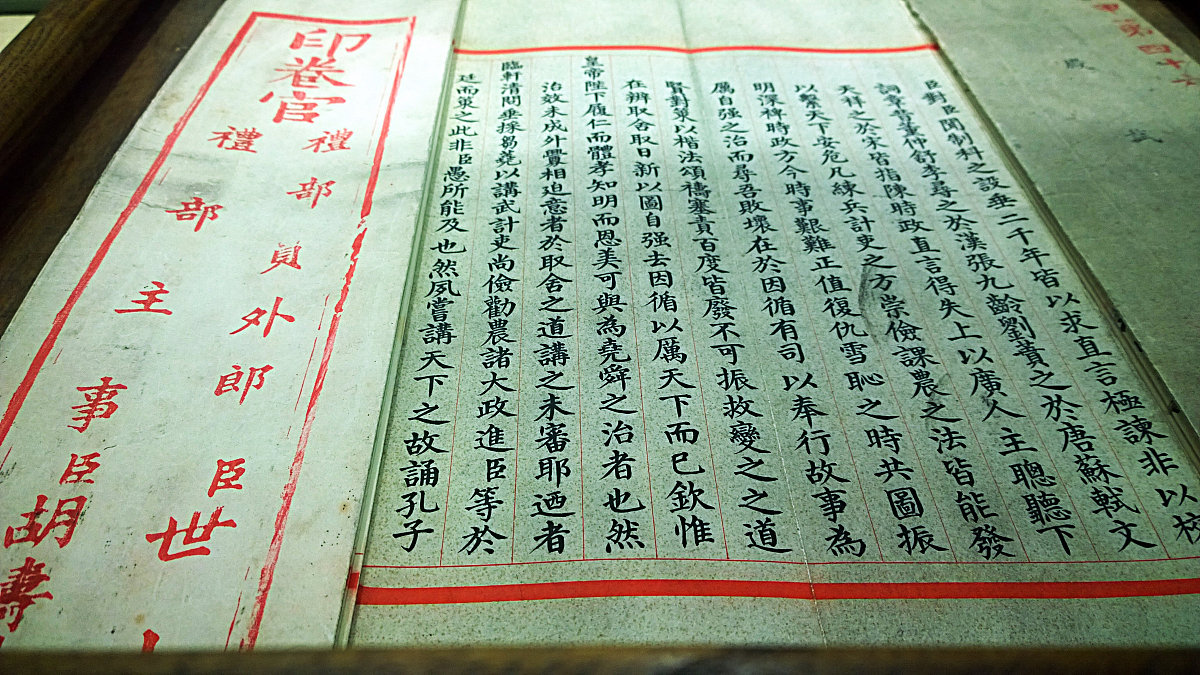 第四十
殿
試
臣對臣聞制科之設垂二千年皆以求直言極諫非以校
詞章昔董仲舒李尋之於漢張九齡劉蕡之於唐蘇軾文
天祥之於宋皆指陳時政直言得失上以廣人主聰聽下
以繫天下安危凡練兵計吏之方崇儉課農之法皆能發
明深裨時政方今時事艱難正值復仇雪恥之時共圖振
厲自强之治而尋吾敗壞在於因循有司以奉行故事為
賢對策以楷法頌禱塞責百度皆廢不可振救變之之道
在辨取舍取日新以圖自强去因循以厲天下而已欽惟
皇帝陛下履仁而體孝知明而恩美可與為堯舜之治者也然
治效未成外釁相迫意者於取舍之道講之未審耶迺者
臨軒清問垂採芻蕘以講武計吏尚儉勸農諸大政進臣等於
廷而策之此非臣愚所能及也然夙嘗講天下之故誦孔子
印卷官
禮部員外郎臣世
禮部主事臣胡壽